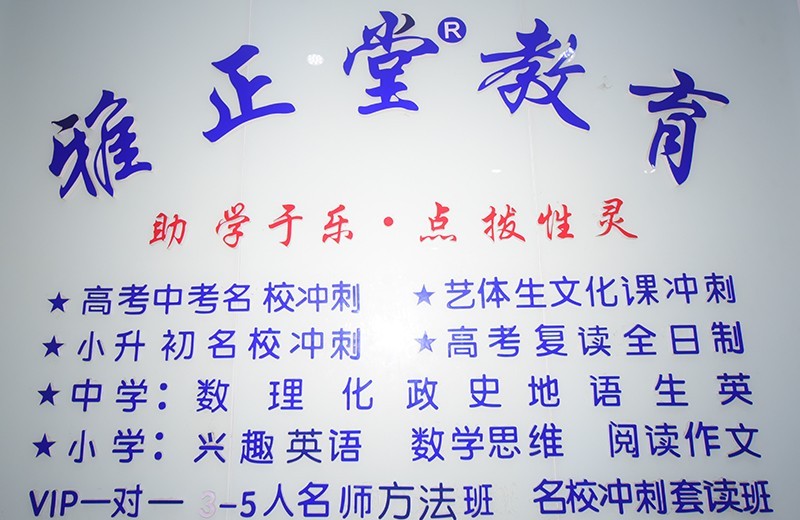 雅正堂®教育
助学于乐·点拨性灵
★高考中考名校冲刺 ★艺体生文化课冲刺
★小升初名校冲刺 ★高考复读全日制
★中学：数理化政史地语生英
★小学：兴趣英语 数学思维 阅读作文
VIP一对一 3-5人名师方法班 名校冲刺套读班